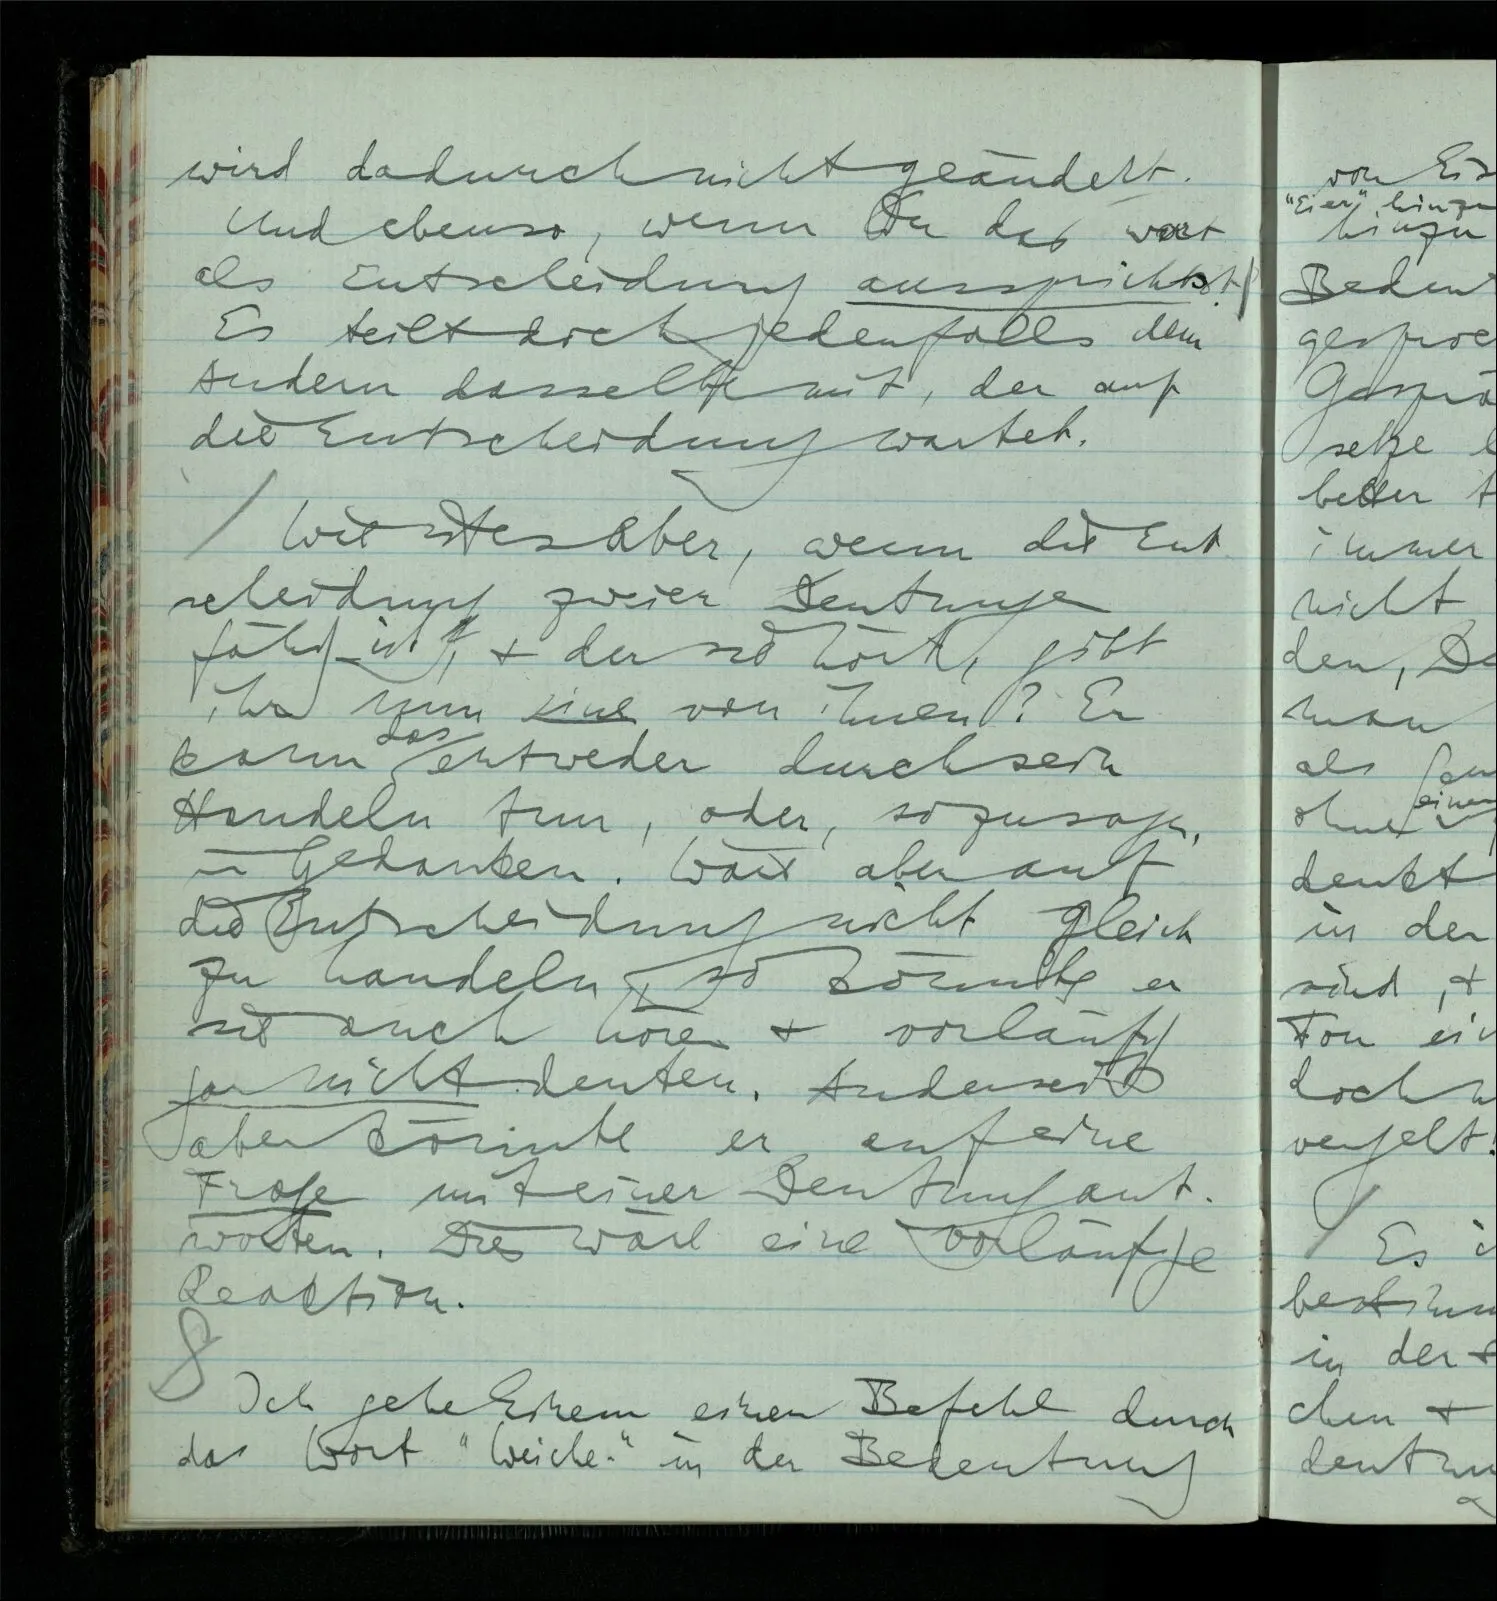 wird dadurch nicht geändert.
Und ebenso, wenn Du das Wort
als Entscheidung aussprichst!
Es teilt doch jedenfalls dem
Andern dasselbe mit, der auf
die Entscheidung wartet.
/ Wie ist es aber, wenn die Ent
scheidung zweier Deutungen
fähig ist, + der sie hört, gibt
ihr nun eine von ihnen? Er
kann das entweder durch sein
Handeln tun, oder, sozusagen,
in Gedanken. Wäre aber auf
die Entscheidung nicht gleich
zu handeln, so könnte er
sie auch hören + vorläufig
gar nicht deuten. Anderseits
aber könnte er auf eine
Frage mit einer Deutung ant-
worten. Dies wäre eine vorläufige
Reaction.
Ich gebe Einem einen Befehl durch
das Wort "Weiche." in der Bedeutung
von
"Eier"
hinzu
Bedeut
gesproc
Gesprä
setze
immer
nicht
den,
man
als
ohne einen
denkt
in der
sind, +
Ton ein
doch
vergelt!
/
Es
bestimm
in der
chen +
deutun